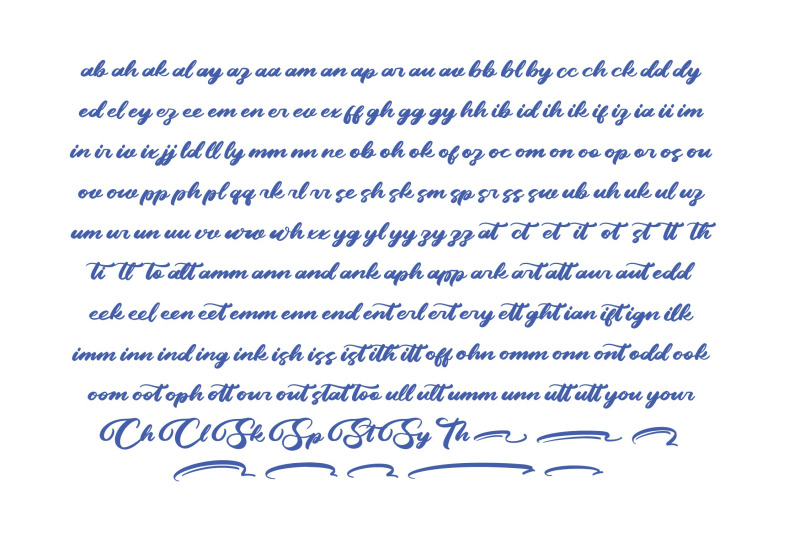 ab ah ak al ay az aa am an ap ar au av bb bl by cc ch ck dd dy
ed el ey ez ee em en er ev ex ff gh gg gy hh ib id ih ik if iz ia ii im
in ir iv ix jj ld ll ly mm nn ne ob oh ok of oz oc om on oo op or os ou
ov ow pp ph pl qq rk rl rr se sh sk sm sp sr ss sw ub uh uk ul uz
um ur un uu vv ww wh xx yg yl yy zy zz at ct et it ot st tt th
ti tl to att amm ann and ank aph app ark art att aur aut edd
eek eel een eet emm enn end ent erl ert ery ett ght ian ift ign ilk
imm inn ind ing ink ish iss ist ith itt off ohn omm onn ont odd ook
oom oot oph ott our out stat too ull ult umm unn utt utt you your
Ch Cl Sk Sp St Sy Th